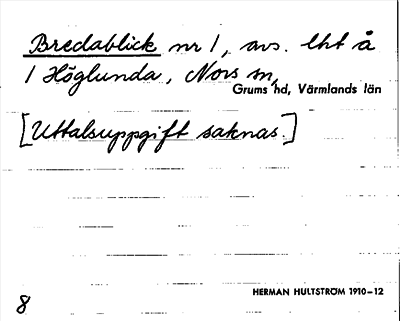 Bredablick nr 1, avs. lht å
1 Höglunda, Nors sn,
Grums hd, Värmlands län
[Uttalsuppgift saknas.]
HERMAN HULTSTRÖM 1910–12
8